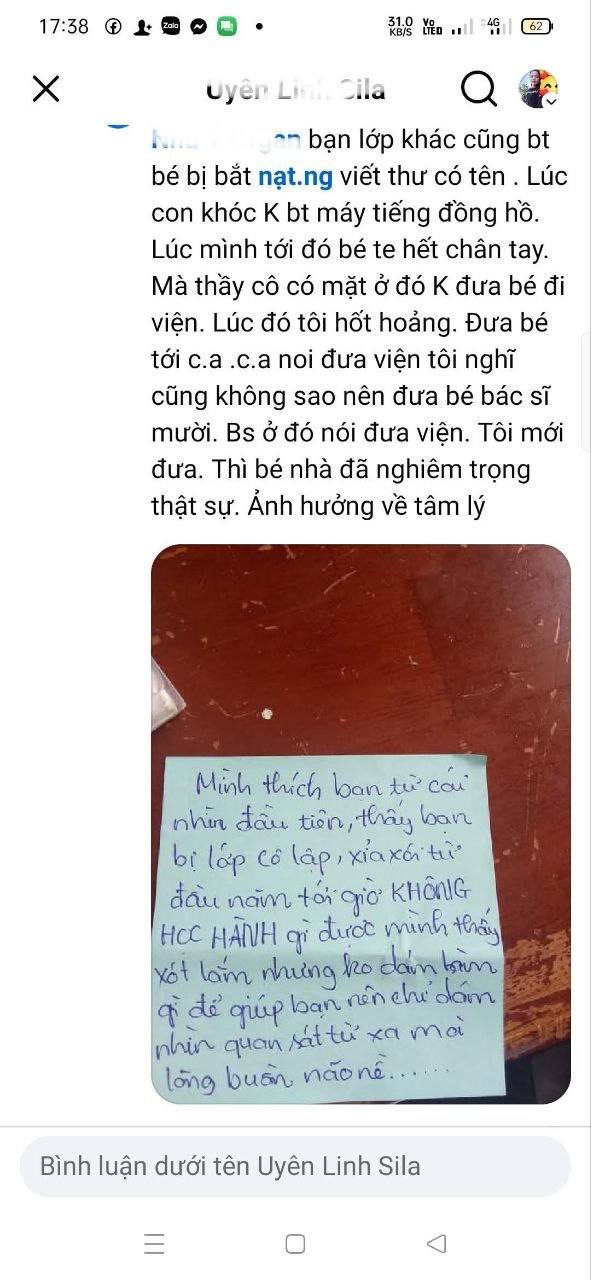 17:38 Zalo 31.0 KB/S Vo LTED 4G 62
Uyên Linh Sila
bạn lớp khác cũng bt
bé bị bắt nạt.ng viết thư có tên . Lúc
con khóc K bt máy tiếng đồng hồ.
Lúc mình tới đó bé te hết chân tay.
Mà thầy cô có mặt ở đó K đưa bé đi
viện. Lúc đó tôi hốt hoảng. Đưa bé
tới c.a .c.a noi đưa viện tôi nghĩ
cũng không sao nên đưa bé bác sĩ
mười. Bs ở đó nói đưa viện. Tôi mới
đưa. Thì bé nhà đã nghiêm trọng
thật sự. Ảnh hưởng về tâm lý
Mình thích bạn từ cái
nhìn đầu tiên, thấy bạn
bị lớp cô lập, xỉa xói từ
đầu năm tới giờ KHÔNG
HCC HÀNH gì được mình thấy
xót lắm nhưng ko dám làm
gì để giúp bạn nên chỉ dám
nhìn quan sát từ xa mà
lòng buồn não nề......
Bình luận dưới tên Uyên Linh Sila